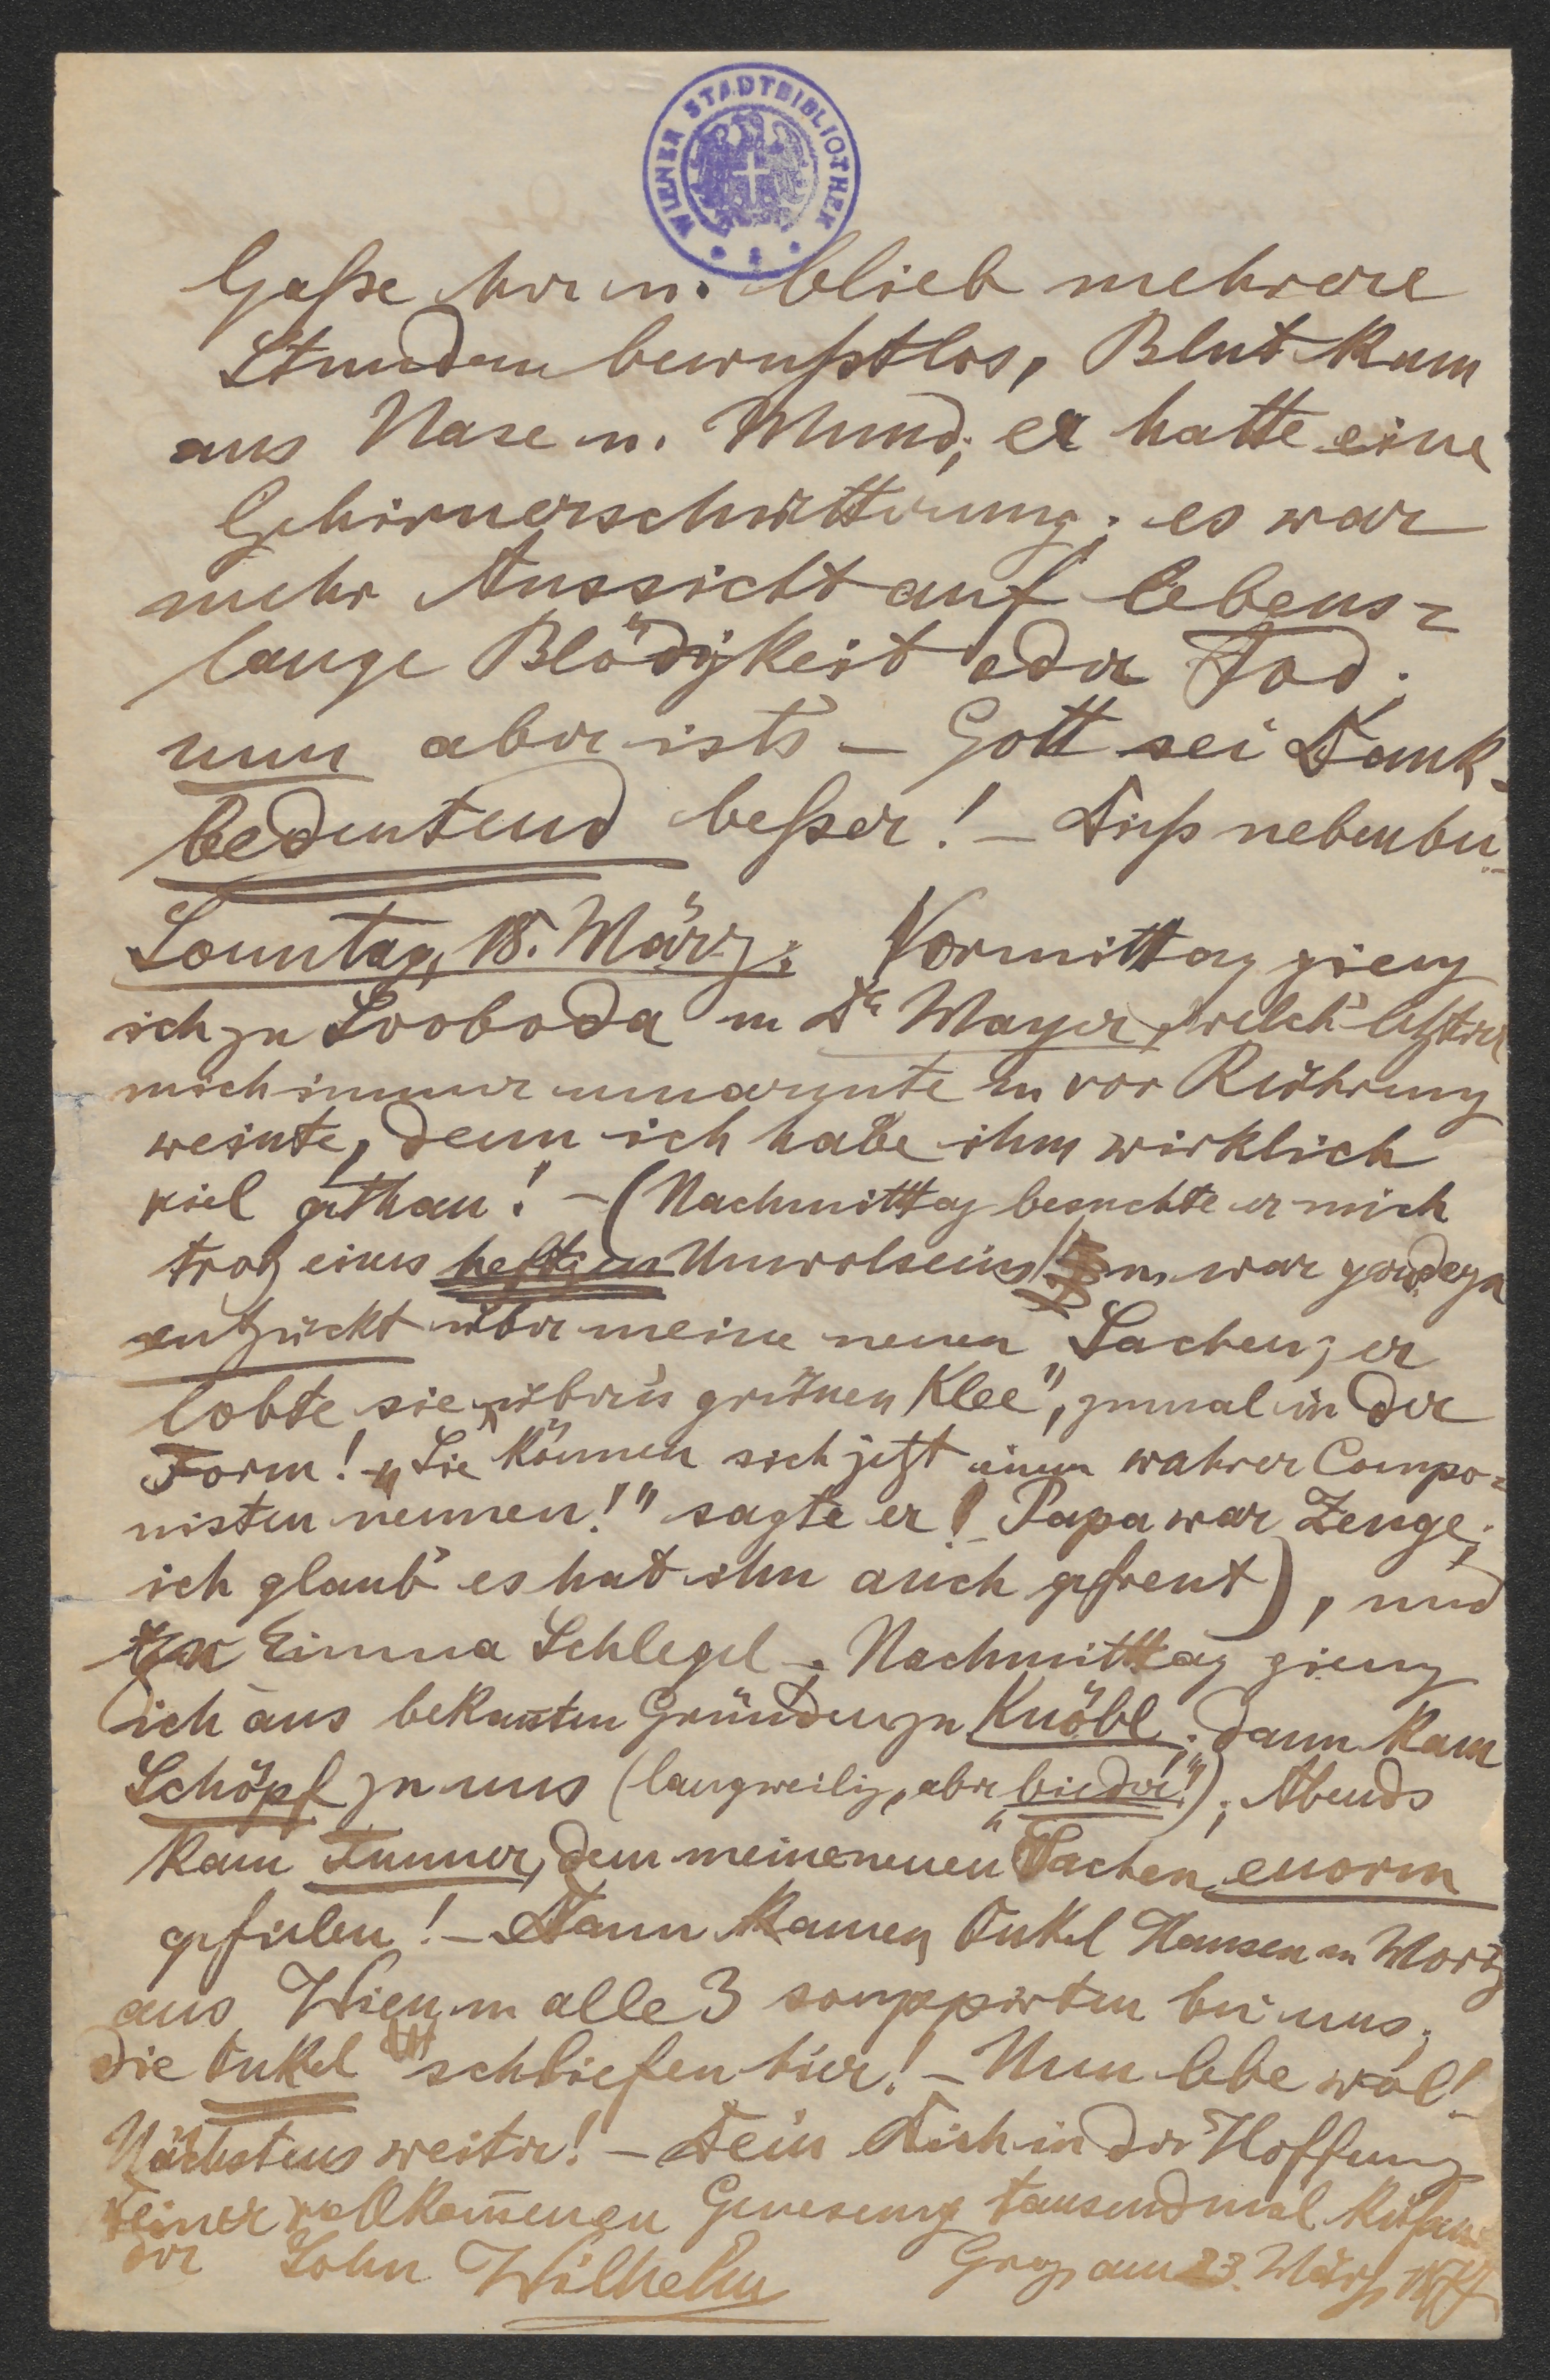 WIENER STADTBIBLIOTHEK
Gaße hin u. blieb mehrere
Stunden bewußtlos, Blut kam
aus Nase u. Mund; er hatte eine
Gehirnerschütterung; es war
mehr Aussicht auf lebens=
lange Blödigkeit oder Tod;
nun aber ists – Gott sei Dank –
bedeutend beßer! – Dieß nebenbei
Sonntag, 18. März: Vormittag gieng
ich zu Svoboda u Dr Mayer, welch' letzterer
mich immer umarmte u vor Rührung
weinte, denn ich habe ihm wirklich
viel gethan! – (Nachmittag besuchte er mich
trotz eines heftigen Unwolseins u. war geradezu
entzückt über meine neuen Sachen; er
lobte sie „über'n grünen Klee", zumal in der
Form! – „Sie können sich jetzt einen wahren Compo=
nisten nennen!" sagte er! Papa war Zeuge;
ich glaub' es hat ihn auch gefreut), und
zu Emma Schlegel. – Nachmittag gieng
ich aus bekannten Gründen zu Knöbl; dann kam
Schöpf zu uns (langweilig, aber „bieder!"); Abends
kam Tunner, dem meine neuen Sachen enorm
gefielen! – Dann kamen Onkel Hansen u Moriz
aus Wien u alle 3 soupirten bei uns;
die Onkel schliefen hier! – Nun lebe wol! –
Nächstens weiter! – Dein Dich in der Hoffnung
Deiner vollkom̅enen Genesung tausendmal küßender
Sohn Wilhelm Graz, am 23. März 1877